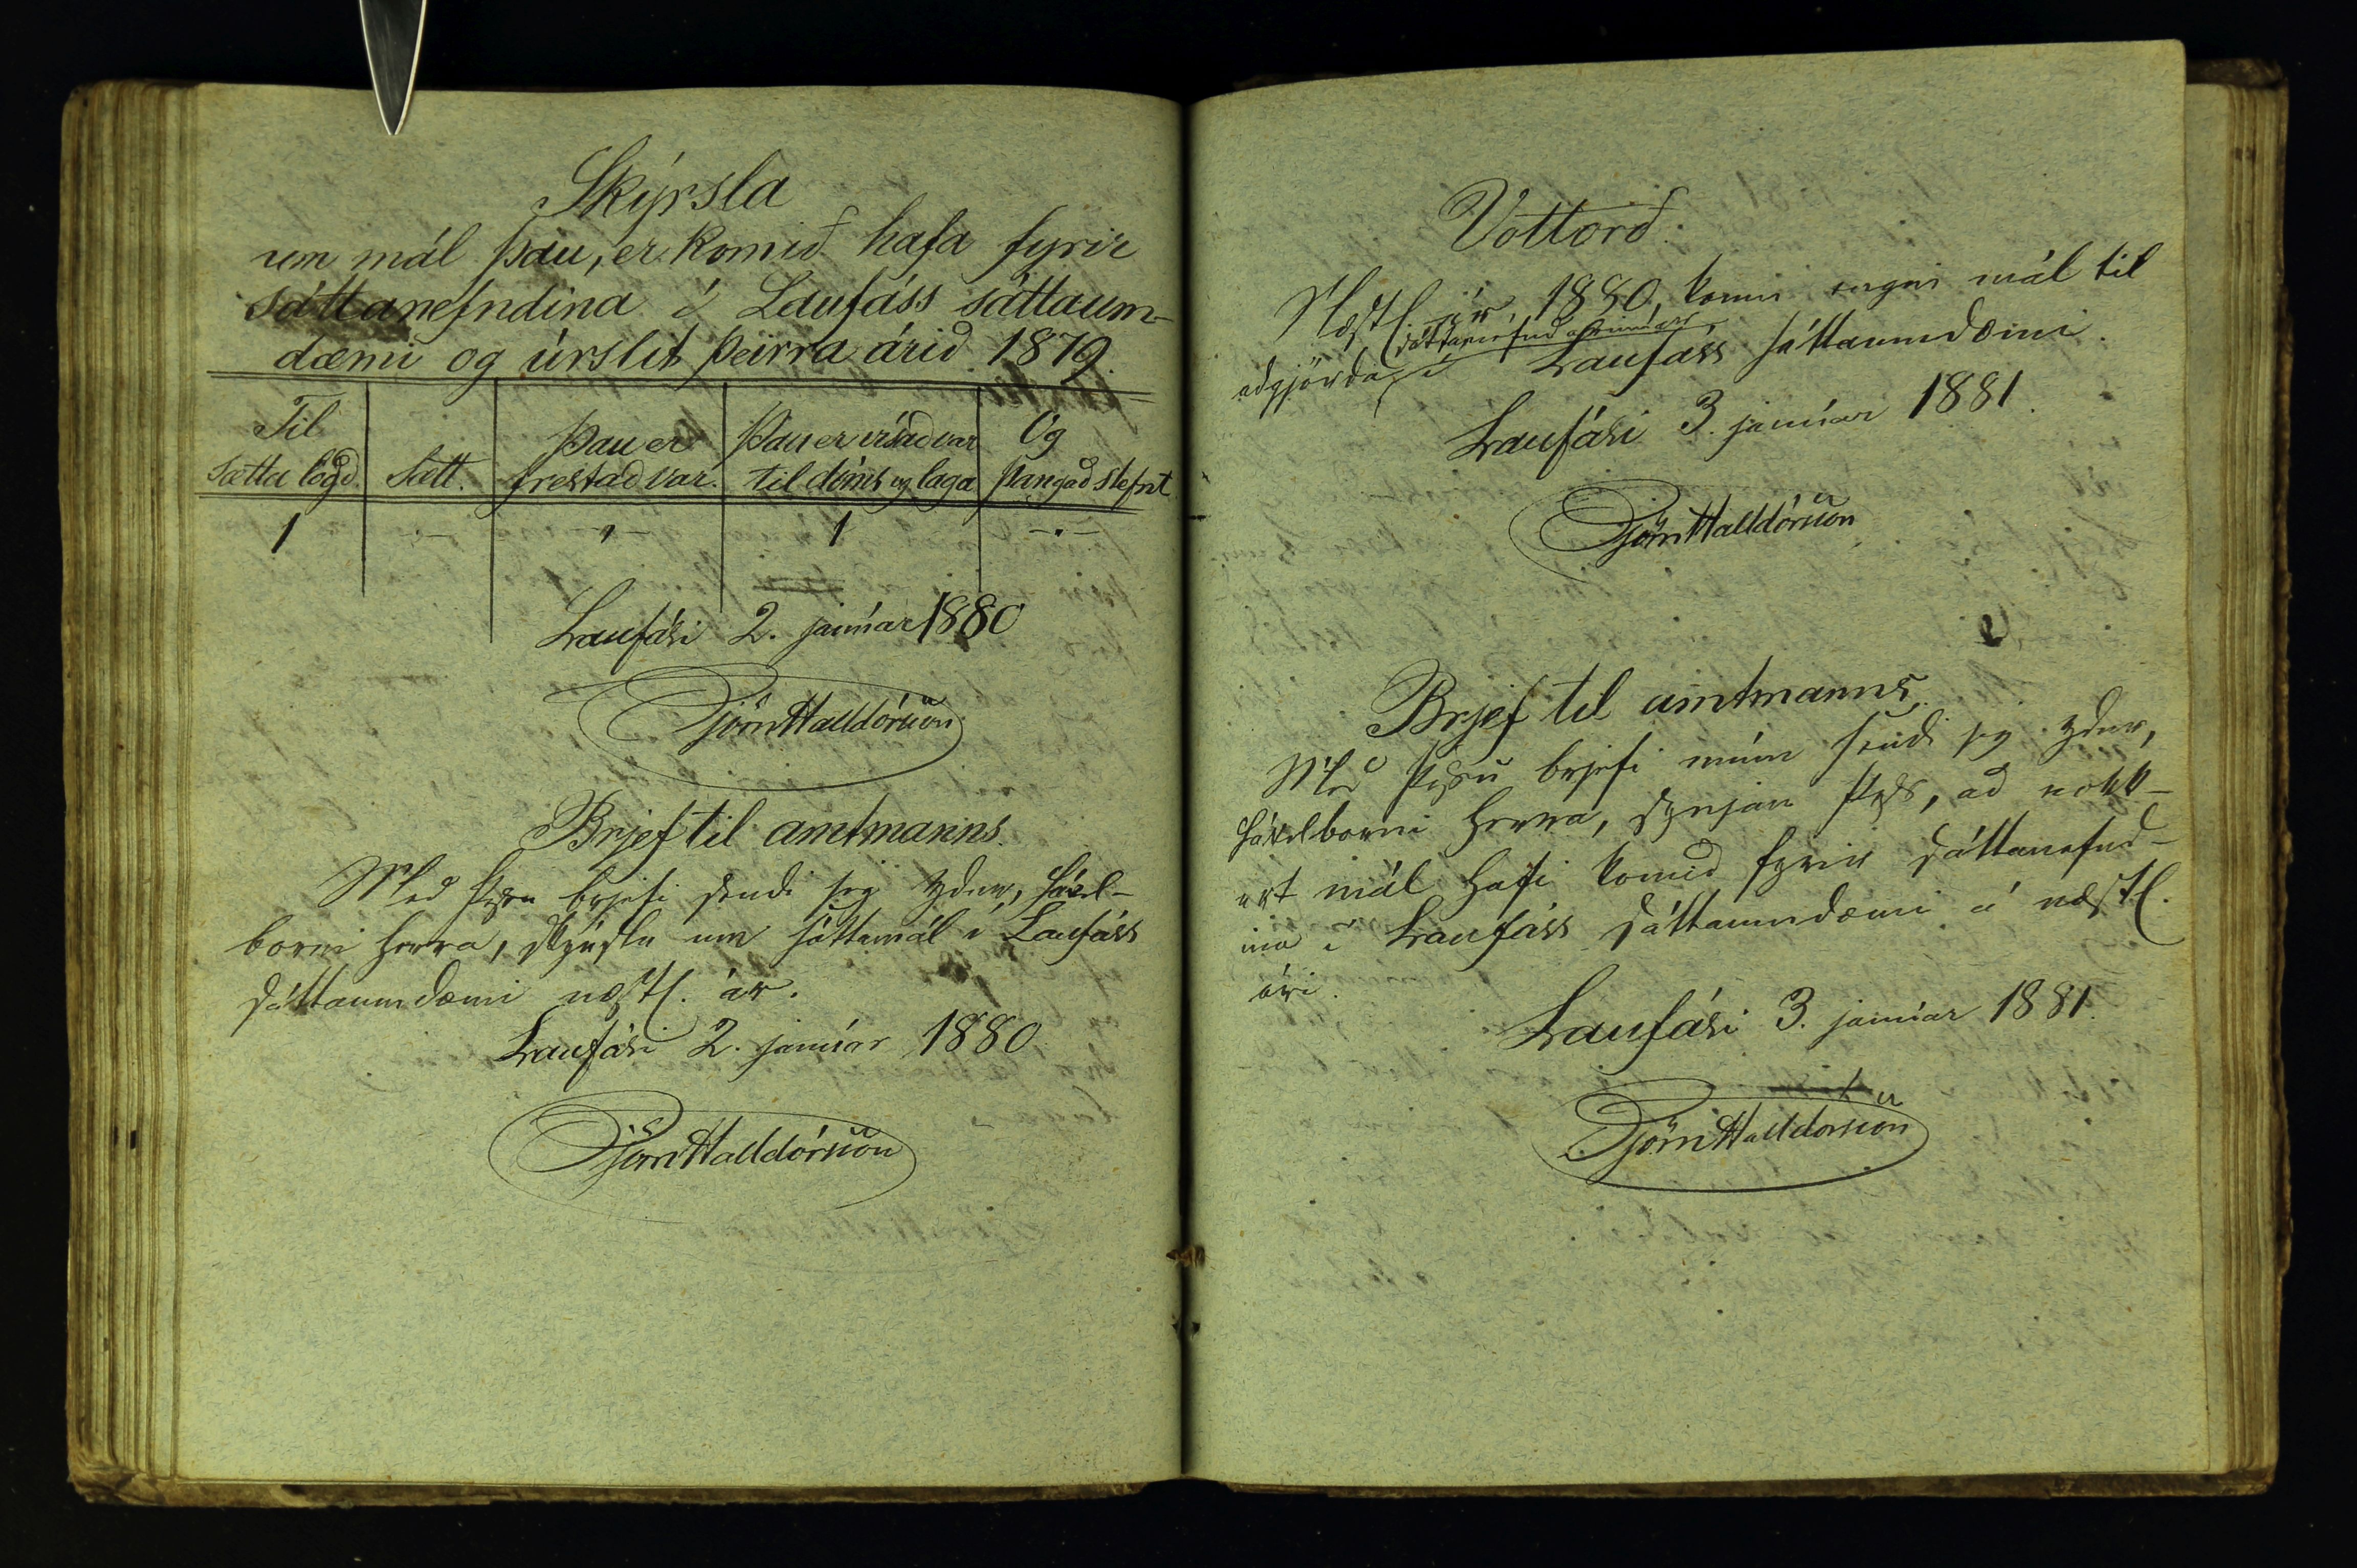 Skýrsla
um mál þau, er komið hafa fyrir
sáttanefndina í Laufáss sáttaum-
dæmi og úrslit þeirra árið 1879.
Til sætta lögð. | Sætt. | Þau er frestað var. | Þau er vísað var til dóms og laga | Og þangað stefnt
1 | - | " | 1 | -"-
Laufási 2. janúar 1880
Björn Halldórsson
Brjef til amtmanns.
Með þessu brjefi sendi jeg yður, hável-
borni herra, skýrslu um sáttamál í Laufáss
sáttaumdæmi næstl. ár.
Laufási 2. janúar 1880
Björn Halldórsson
Vottorð.
Næstl. ár, 1880, komu engin mál til
sáttanefndarinnar
aðgjörða í Laufáss sáttaumdæmi.
Laufási 3. janúar 1881.
Björn Halldórsson
Brjef til amtmanns.
Með þessu brjefi mínu sendi jeg yður,
hávelborni herra, synjan þess, að nokk-
urt mál hafi komið fyrir sáttanefnd-
ina í Laufáss sáttaumdæmi á næstl.
ári.
Laufási 3. janúar 1881.
Björn Halldórsson